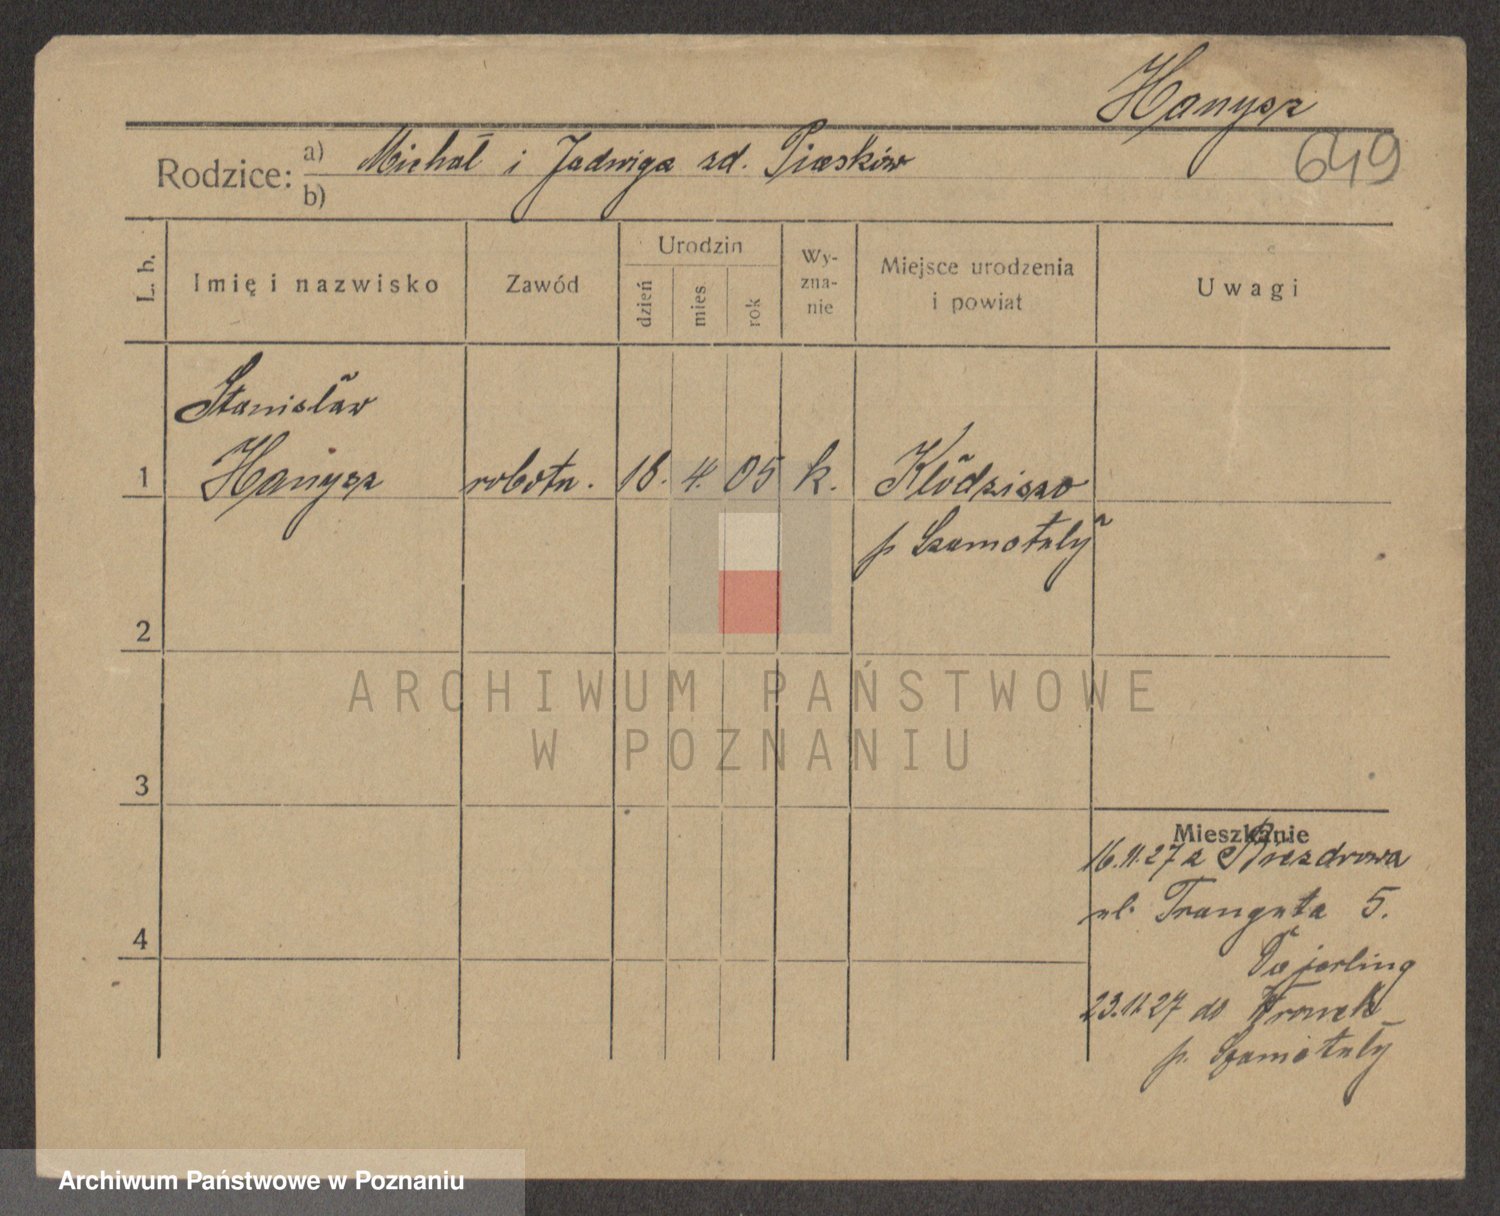 Hanysz
649
Rodzice: a) Michał i Jadwiga zd. Piasków
b)
L. b.
Imię i nazwisko
Zawód
Urodzin
dzień
mies
rok
Wy-
zna-
nie
Miejsce urodzenia
i powiat
Uwagi
Stanisław
1 Hanysz robotn. 18. 4. 05 k. Kłodzisko
p Szamotuły
2
ARCHIWUM PAŃSTWOWE
W POZNANIU
3
Mieszkanie
16.11.27 z Biezdrowa
ul. Trauguta 5.
4
23.11.27 do Wronek
p. Szamotuły
Archiwum Państwowe w Poznaniu